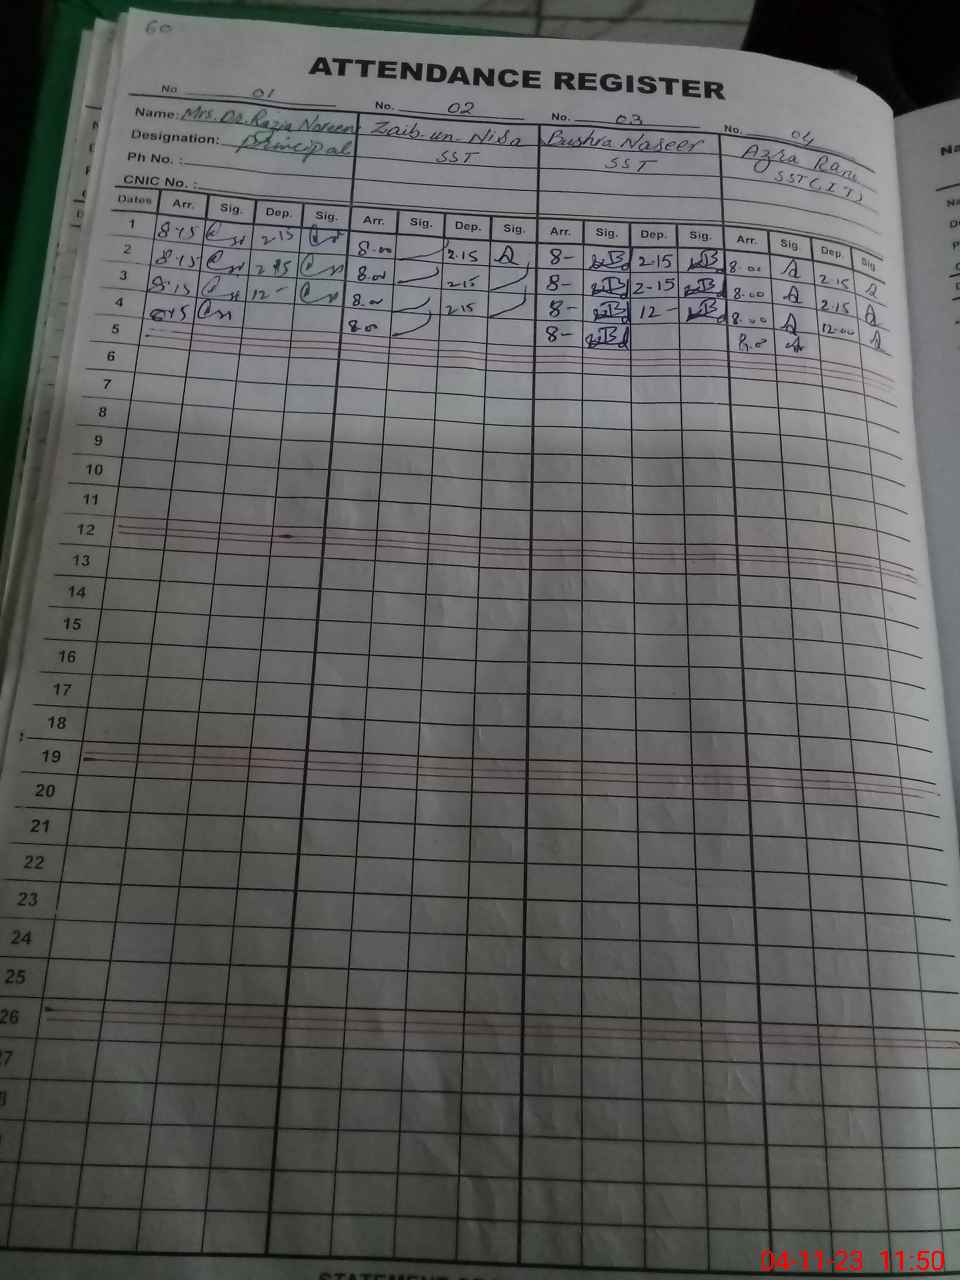 60
ATTENDANCE REGISTER
No. 01 No. 02 No. 03 No. 04
Name: Mrs. Dr. Razia Noreen Zaib-un-Nisa Bushra Naseer Azra Rani
Designation: Principal SST SST SST (I.T)
Ph No. :
CNIC No. :
Dates Arr. Sig. Dep. Sig. Arr. Sig. Dep. Sig. Arr. Sig. Dep. Sig. Arr. Sig. Dep. Sig.
1 8-15 2-15 8.00 2.15 8- 2-15 8.00 2.15
2 8-15 2-15 8.00 2.15 8- 2-15 8.00 2.15
3 8-15 12- 8.00 2.15 8- 12- 8.00 12.00
4 8.00 8-
5
6
7
8
9
10
11
12
13
14
15
16
17
18
19
20
21
22
23
24
25
26
27
04-11-23 11:50